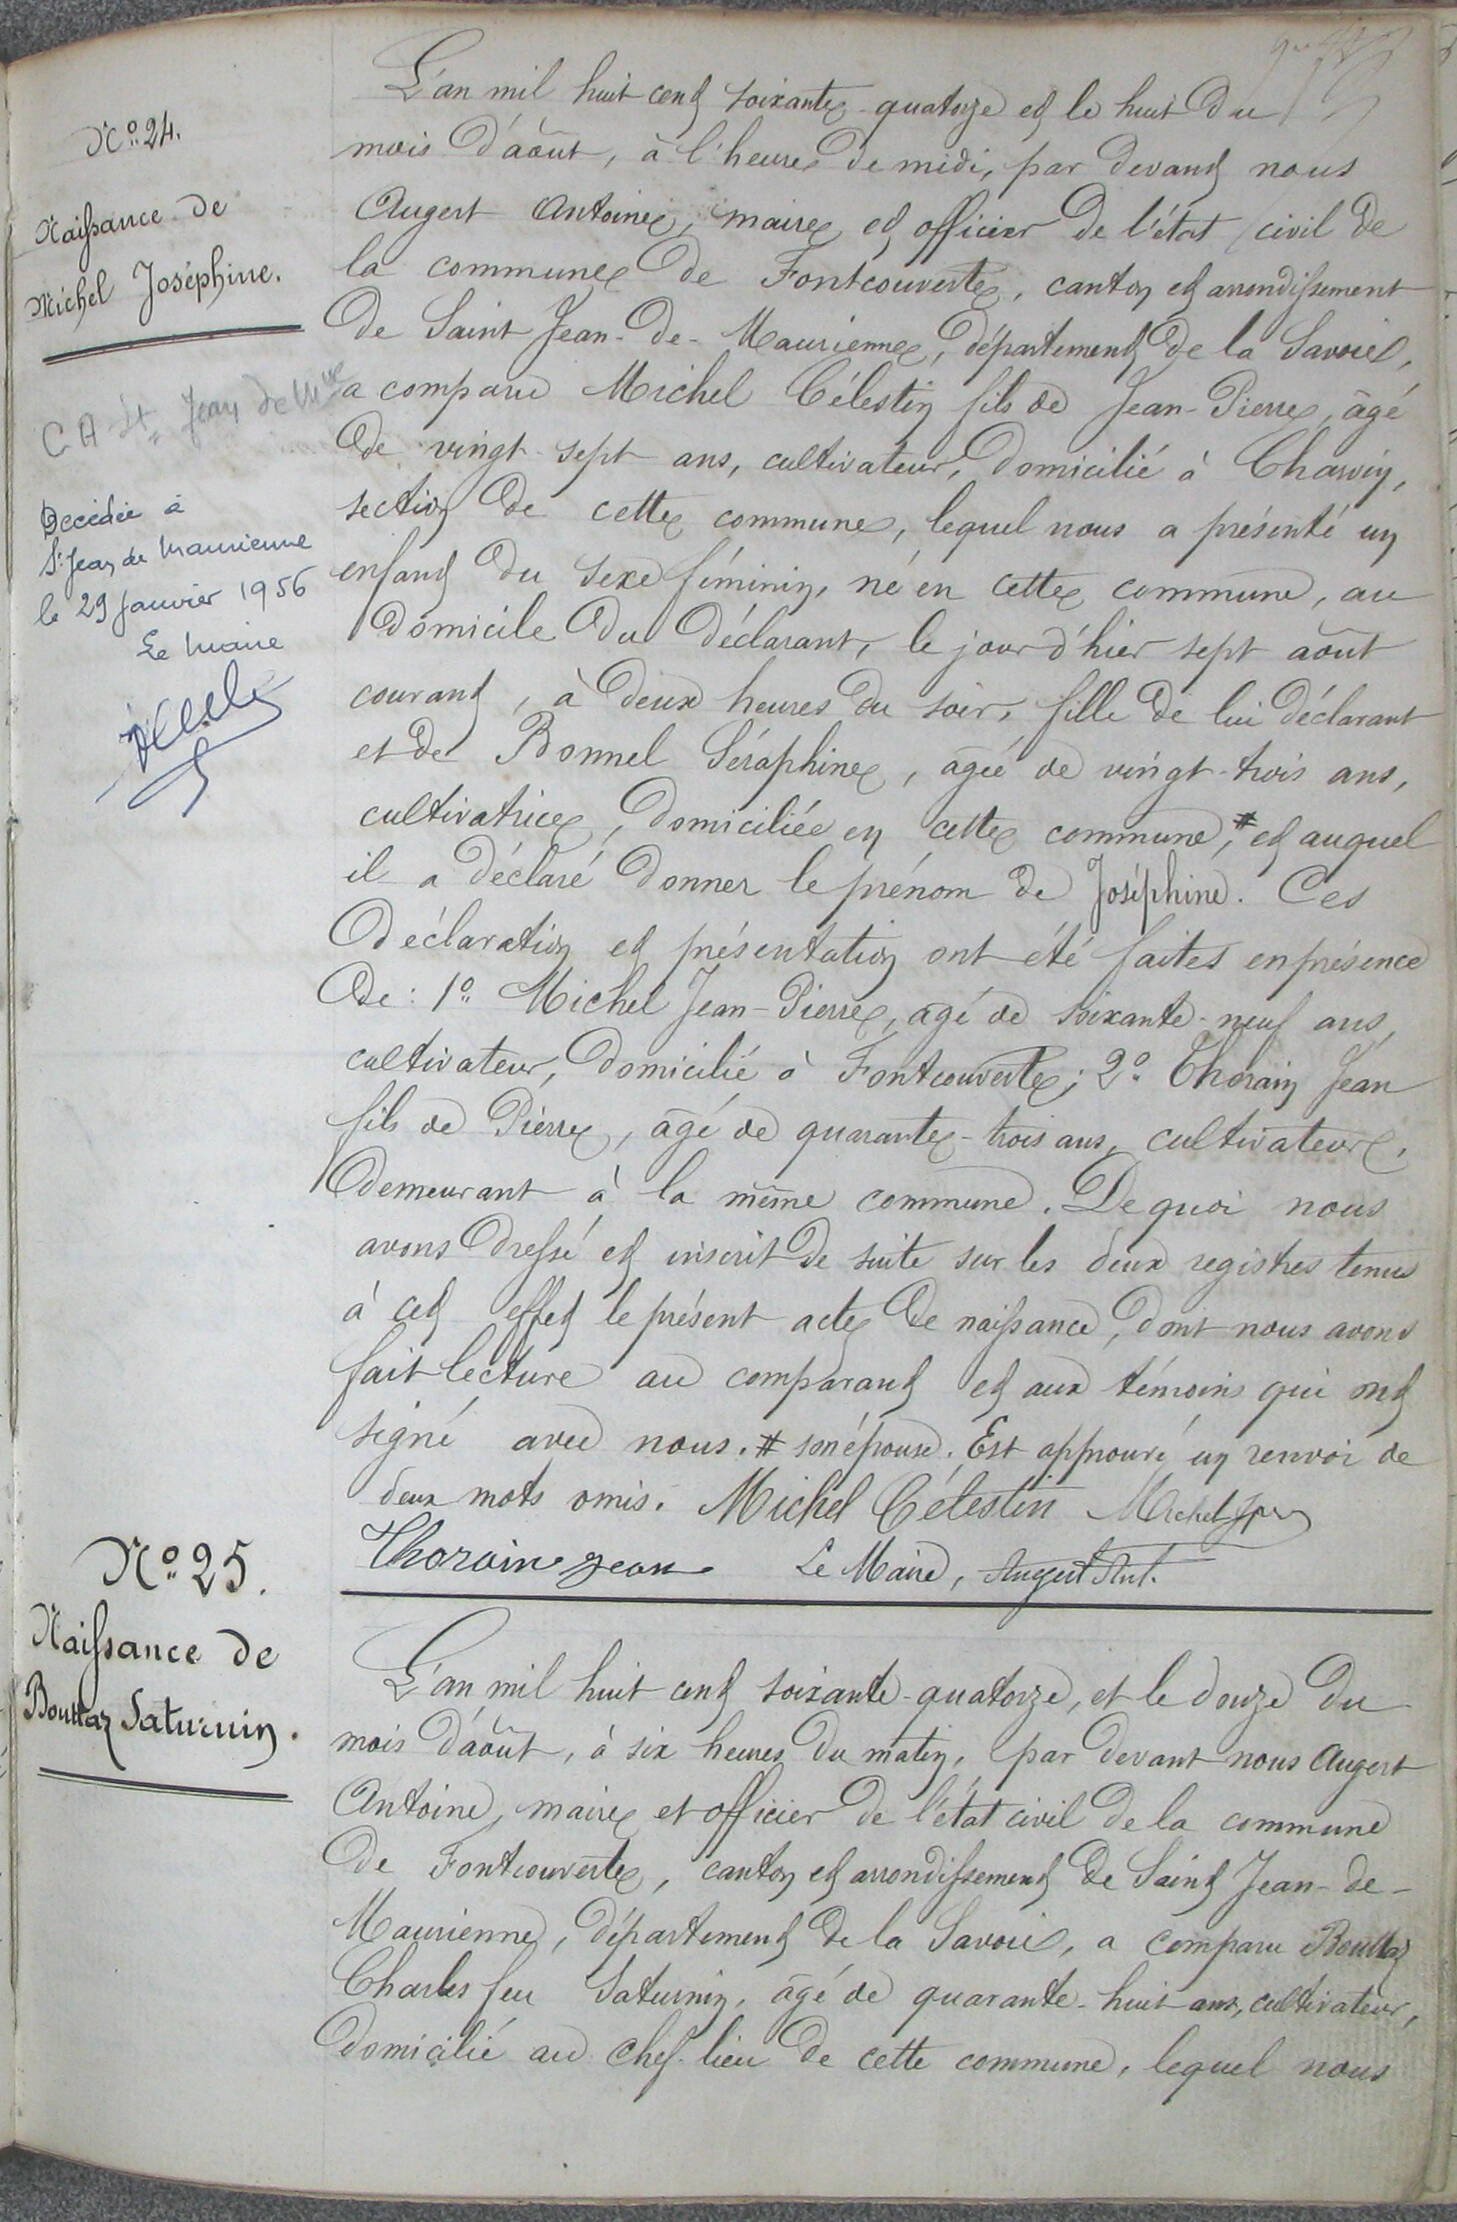 N° 24.
Naissance de
Michel Joséphine.
C A St Jean de Mne
Décédée à
St Jean de Maurienne
le 29 janvier 1956
Le Maire
L'an mil huit cent soixante-quatorze et le huit du
mois d'août, à l'heure de midi, par devant nous
Augert Antoine, maire et officier de l'état civil de
la commune de Fontcouverte, canton et arrondissement
de Saint Jean-de-Maurienne, département de la Savoie,
a comparu Michel Célestin fils de Jean-Pierre, âgé
de vingt-sept ans, cultivateur, domicilié à Charvin,
section de cette commune, lequel nous a présenté un
enfant du sexe féminin, né en cette commune, au
domicile du déclarant, le jour d'hier sept août
courant, à deux heures du soir, fille de lui déclarant
et de Bonnel Séraphine, âgée de vingt-trois ans,
cultivatrice, domiciliée en cette commune, # et auquel
il a déclaré donner le prénom de Joséphine. Ces
déclaration et présentation ont été faites en présence
de : 1° Michel Jean-Pierre, âgé de soixante-neuf ans,
cultivateur, domicilié à Fontcouverte ; 2° Thorain Jean
fils de Pierre, âgé de quarante-trois ans, cultivateur,
demeurant à la même commune. De quoi nous
avons dressé et inscrit de suite sur les deux registres tenus
à cet effet le présent acte de naissance, dont nous avons
fait lecture au comparant et aux témoins qui ont
signé avec nous. # son épouse. Est approuvé un renvoi de
deux mots omis. Michel Célestin Michel
Thorain Jean Le Maire, Augert Ant.
N° 25.
Naissance de
Bouttaz Saturnin.
L'an mil huit cent soixante-quatorze, et le douze du
mois d'août, à six heures du matin, par devant nous Augert
Antoine, maire et officier de l'état civil de la commune
de Fontcouverte, canton et arrondissement de Saint Jean-de-
Maurienne, département de la Savoie, a comparu Bouttaz
Charles feu Saturnin, âgé de quarante-huit ans, cultivateur,
domicilié au chef-lieu de cette commune, lequel nous